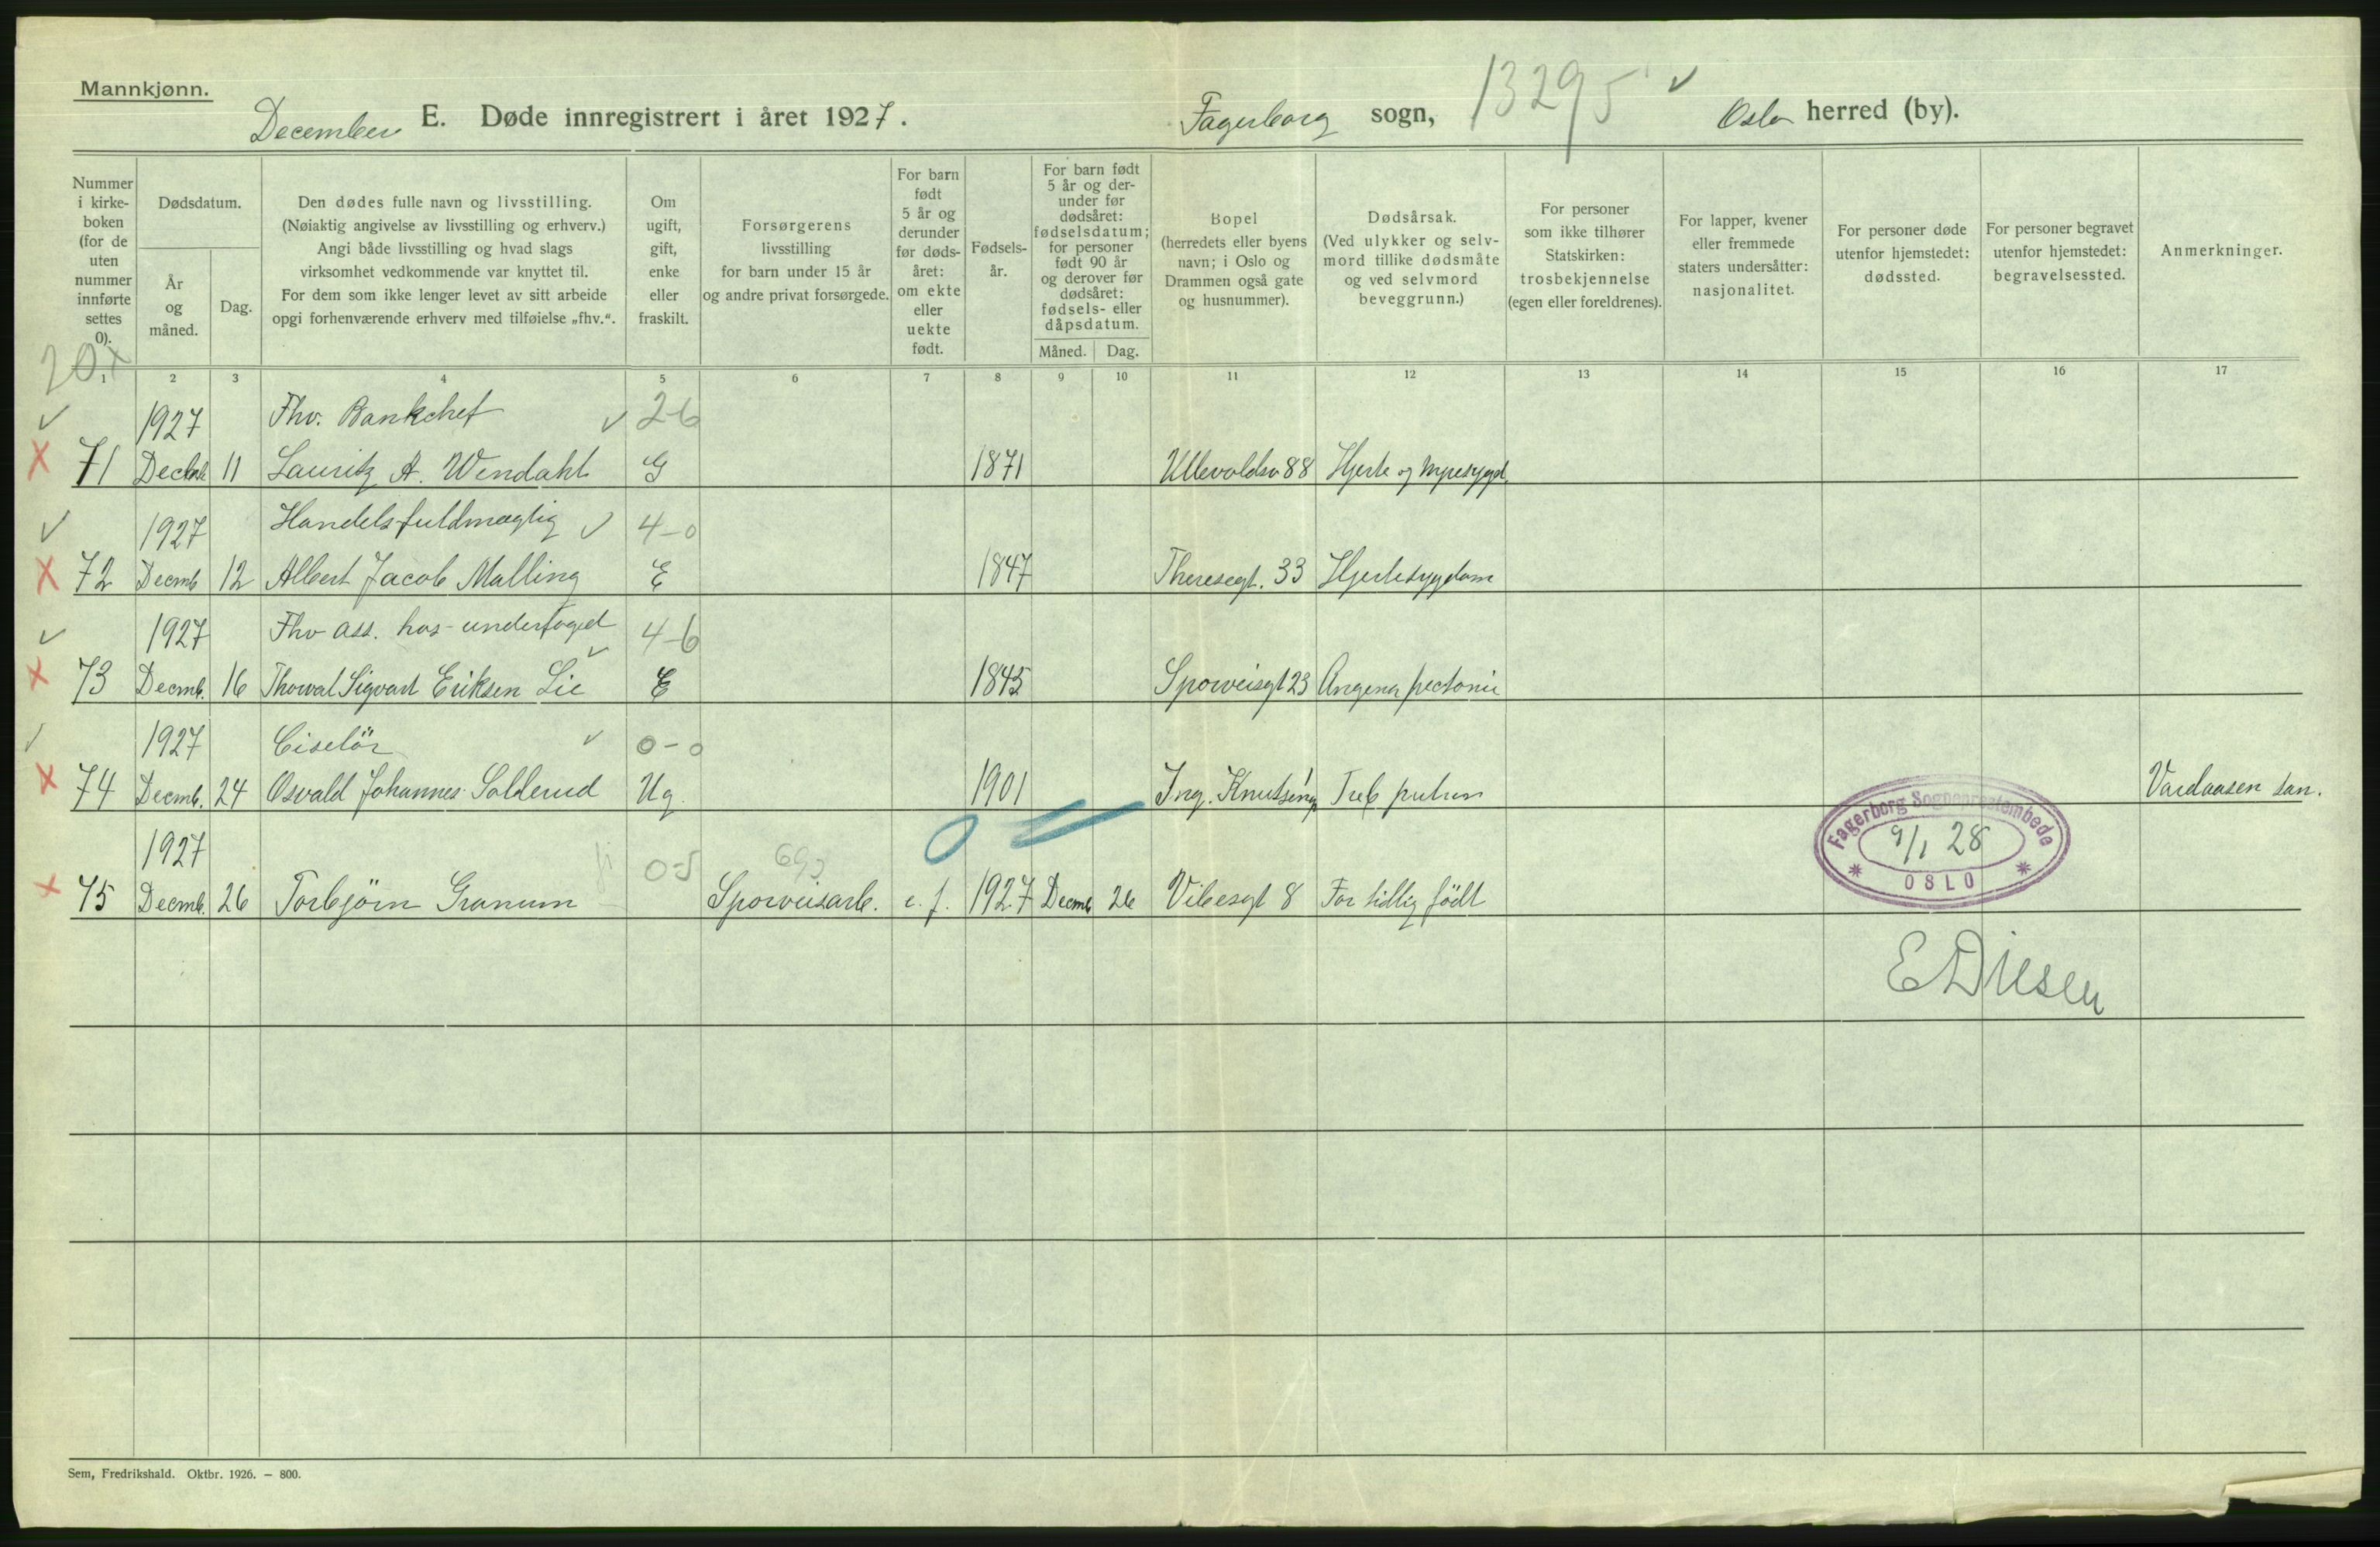 Mannkjønn.
December E. Døde innregistrert i året 1927. Fagerborg sogn, 13295 ✓ Oslo herred (by).
Nummer i kirke- boken (for de uten nummer innførte settes 0).
Dødsdatum.
År og måned.
Dag.
Den dødes fulle navn og livsstilling.
(Nøiaktig angivelse av livsstilling og erhverv.)
Angi både livsstilling og hvad slags
virksomhet vedkommende var knyttet til.
For dem som ikke lenger levet av sitt arbeide
opgi forhenværende erhverv med tilføielse „fhv.“.
Om ugift, gift, enke eller fraskilt.
Forsørgerens
livsstilling
for barn under 15 år
og andre privat forsørgede.
For barn født 5 år og derunder før døds- året: om ekte eller uekte født.
Fødsels- år.
For barn født 5 år og der- under før dødsåret: fødselsdatum; for personer født 90 år og derover før dødsåret: fødsels- eller dåpsdatum.
Måned. Dag.
Bopel
(herredets eller byens
navn; i Oslo og
Drammen også gate
og husnummer).
Dødsårsak.
(Ved ulykker og selv-
mord tillike dødsmåte
og ved selvmord
beveggrunn.)
For personer
som ikke tilhører
Statskirken:
trosbekjennelse
(egen eller foreldrenes).
For lapper, kvener
eller fremmede
staters undersåtter:
nasjonalitet.
For personer døde
utenfor hjemstedet:
dødssted.
For personer begravet
utenfor hjemstedet:
begravelsessted.
Anmerkninger.
20 x
1 2 3 4 5 6 7 8 9 10 11 12 13 14 15 16 17
✓ 1927 Fhv. Bankchef ✓ 2-6
x 71 11 Lauritz A. Wendahl G 1871 Ullevoldsv 88 Hjerte og
✓ 1927 Handelsfuldmægtig ✓ 4-0
x 72 Decmb 12 Albert Jacob Malling E 1847 Theresegt. 33 Hjertesygdom
✓ 1927 Fhv ass. hos underfoged ✓ 4-6
x 73 Decmb. 16 Thorval Sigvart Eriksen Lie E 1845 Sporveisgt 23 Angena pectoris
✓ 1927 Ciselör ✓ 0-0
x 74 Decmb. 24 Osvald Johannes Solderud Ug. 1901 Ing. Tub pulm Vardaasen san.
1927 0-5
x 75 Decmb. 26 Torbjörn Granum Sporveisarb. e. f. 1927 Decmb 26 Vibesgt 8 For tidlig født
Fagerborg Sogneprestembede
9/1 28
OSLO
Sem, Fredrikshald. Oktbr. 1926. — 800.